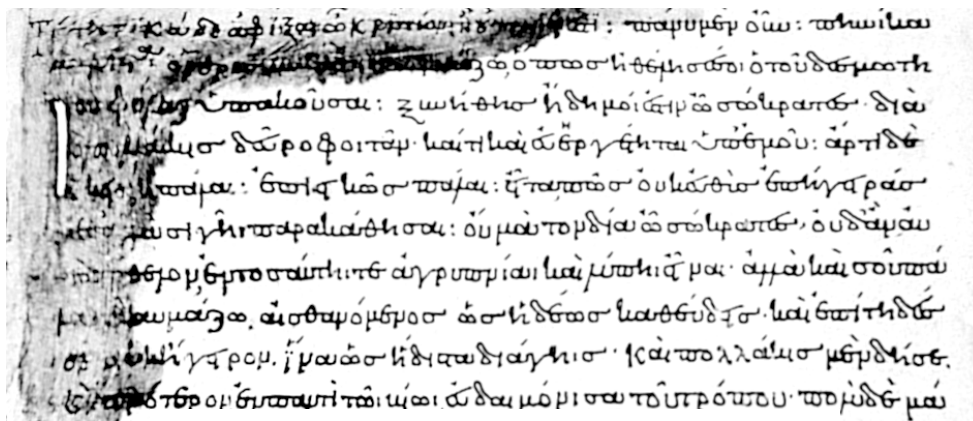 Τί τηνικάδε ἀφῖξαι ὦ κρίτων· ἢ οὐ πρῲ ἔτι: πάνυ μὲν οὖν: πηνίκα
μάλιστα: ὄρθρος θαυμάζω, ὅπως ἠθέλησέ σοι ὁ τοῦ δεσμωτη
ρίου φύλαξ ὑπακοῦσαι: ξυνήθης ἤδη μοί ἐστιν ὦ σώκρατες· διὰ
τὸ πολλάκις δεῦρο φοιτᾶν· καί τι καὶ εὐεργέτηται ὑπ' ἐμοῦ: ἄρτι δὲ
ἥκεις ἢ πάλαι: ἐπιεικῶς πάλαι: εἶτα πῶς οὐκ εὐθὺς ἐπήγειράς
με ἀλλὰ σιγῆι παρακάθησαι: οὐ μὰ τὸν δία ὦ σώκρατες, οὐδ' ἂν αὐ
τὸς ἤθελον ἐν τοσαύτηι τε ἀγρυπνίαι καὶ λύπηι εἶναι· ἀλλὰ καὶ σοῦ πά
λαι θαυμάζω, αἰσθανόμενος ὡς ἡδέως καθεύδεις· καὶ ἐπίτηδές
σε οὐκ ἤγειρον, ἵνα ὡς ἥδιστα διάγηις· Καὶ πολλάκις μὲν δή σε,
καὶ πρότερον ἐν παντὶ τῶι βίωι εὐδαιμόνισα τοῦ τρόπου· πολὺ δὲ μά